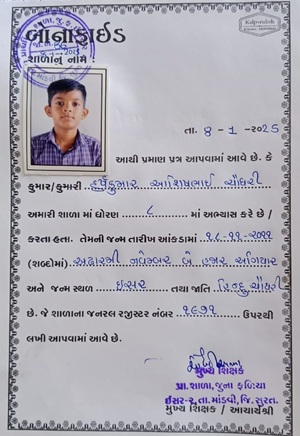 બોનાફાઈડ
શાળાનું નામ :
Kalpvruksh
તા. 8 - 1 - ૨૦25
આથી પ્રમાણ પત્ર આપવામાં આવે છે. કે
કુમાર/કુમારી હર્ષકુમાર આશિષભાઈ ચૌધરી
અમારી શાળા માં ધોરણ ૮ માં અભ્યાસ કરે છે /
કરતા હતા. તેમની જન્મ તારીખ આંકડામાં ૧૮-૧૧-૨૦૧૧
(શબ્દોમાં) અઢારમી નવેમ્બર બે હજાર અગિયાર
અને જન્મ સ્થળ ઇસર તથા જાતિ હિન્દુ ચૌધરી
છે. જે શાળાના જનરલ રજીસ્ટર નંબર ૧૯૭૧ ઉપરથી
લખી આપવામાં આવે છે.
મુખ્ય શિક્ષક
પ્રા. શાળા, જુના ફળિયા
ઇસર-૨, તા. માંડવી, જિ. સુરત.
મુખ્ય શિક્ષક / આચાર્યશ્રી